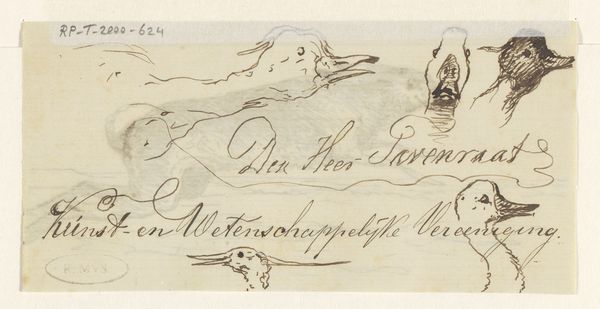 RP-T-2000-624
Den Heer Pavenraat
Kunst- en Wetenschappelijke Vereeniging.
R. MVS